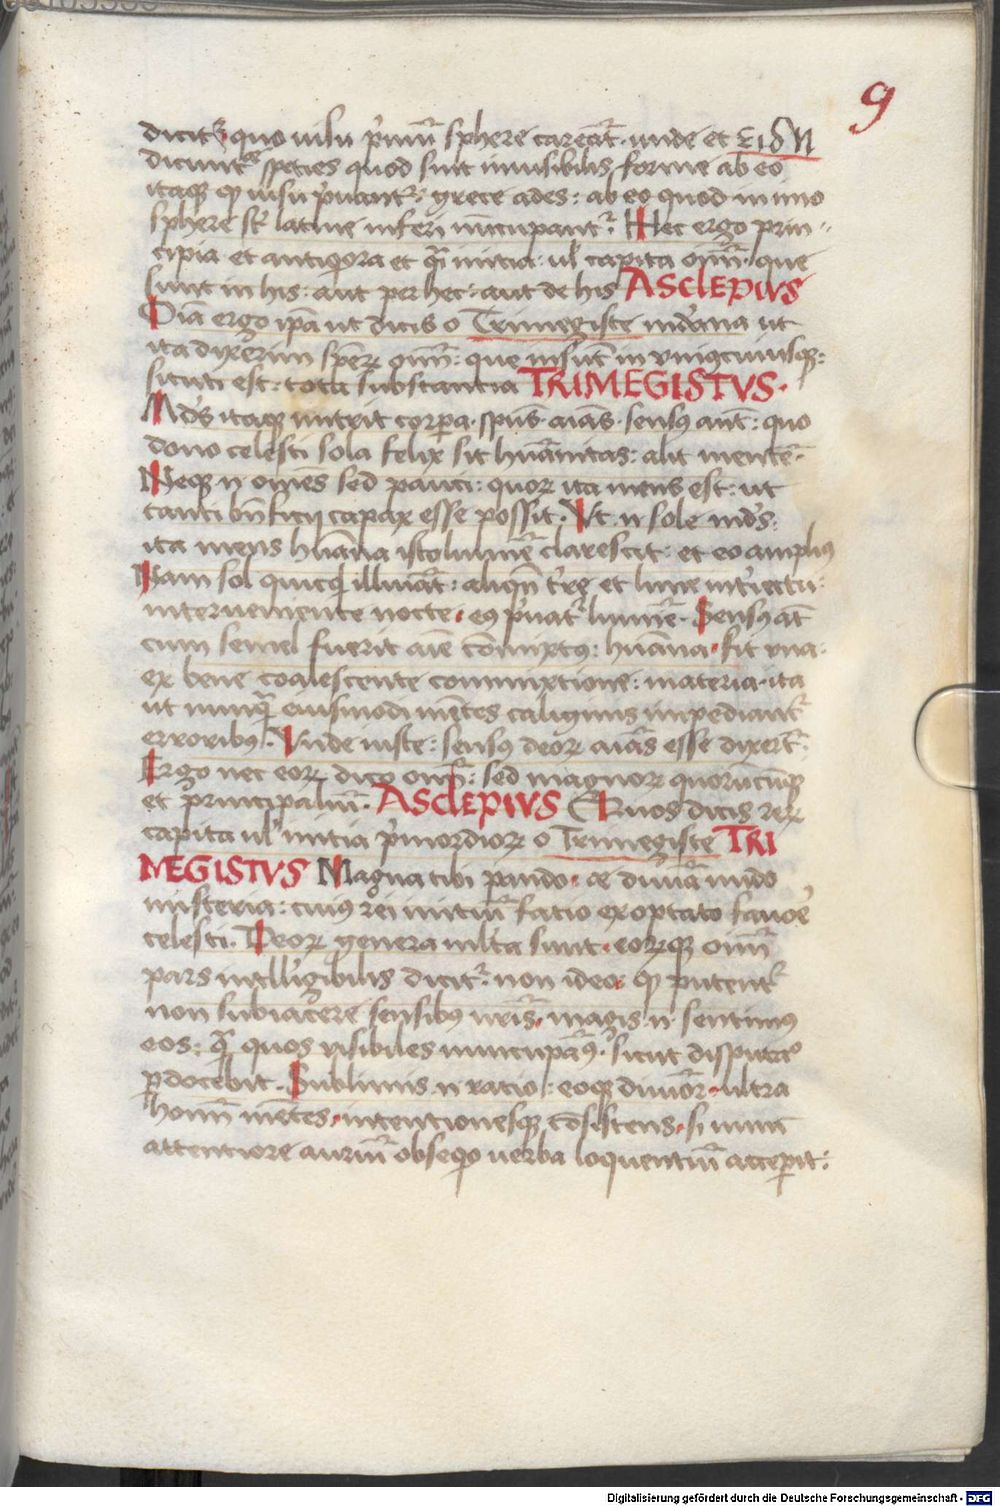 9
dicit᷑ quo uisu p̾mu᷑ sphere careat᷑. unde et ειδη
dicunt᷑ speties quod sint inuisibilis forme ab eo
itaq; ꝙ uisu p̾uant᷑: grece ades: ab eo quod in imo
sphere st᷑ latine inferi nūcupant᷑: Hec ergo prin-
cipia et antiq̄ora et q̄si initia. ul' capita oīm̄. que
sunt in his. aut per hec. aut de his ASCLEPIVS
Oīa ergo ip̄a ut dicis o Trimegiste mūdana ut
ita dixerim spērꝝ oīm̄: que insūt in vniꝯcuiusq;:
sicuti est: tota substantia TRIMEGISTVS.
Mūdꝰ itaq; nutrit corpora. spūs. aīas. sensꝰ aut̄: quo
dono celesti sola felix sit hūanitas: alit mentē.
Neq; n̄ omēs sed pauci: quoꝝ ita mens est: ut
tanti bn̄ficij capax esse possit. Vt n̄ sole mūdꝰ:
ita mens hūana isto luminē clarescit: et eo ampliꝰ
Nam sol quicq̄d illuīat: aliqn̄ t̄rę et lune int̄iectu:
interueniente nocte. eiꝰ p̾uat᷑ lumīe. Sensꝰ aūt
cum semel fuerit aīe cōmixtꝰ: hūana. fit vna.
ex bene coalescente commixtione: materia. ita
ut nunq̄ eiusmodi mētes caliginis impediant᷑
erroribꝰ. Vnde iuste: sensꝰ deoꝝ aīas esse dixert᷑:
Ergo nec eoꝝ dico oīm̄: sed magnoꝝ quorūcunq;
et principaliū. ASCLEPIVS Quos dicis rerꝝ
capita ul' initia p̾mordioꝝ o Trimegiste TRI
MEGISTVS Magna tibi pando. ac diuīa nudo
misteria: cuiꝰ rei initiū facio exoptato fauōe
celesti. Deoꝝ genera m̄lta sunt. eoꝝq; oīm̄
pars intelligibilis dicit᷑. non ideo. ꝙ putent᷑
non subiacere sensibꝰ nr̄is. magis n̄ sentimus
eos: q̄ quos visibiles nuncupamꝰ. sicut disputatͦ
ꝑdocebit. Sublimis n̄ ratio: eoq; diuīor. ultra
homīm mētes. intentionesq; cōsistens. si nunc
attentiore aurīm obseqͦo uerba loquentium acceperit:
Digitalisierung gefördert durch die Deutsche Forschungsgemeinschaft - DFG